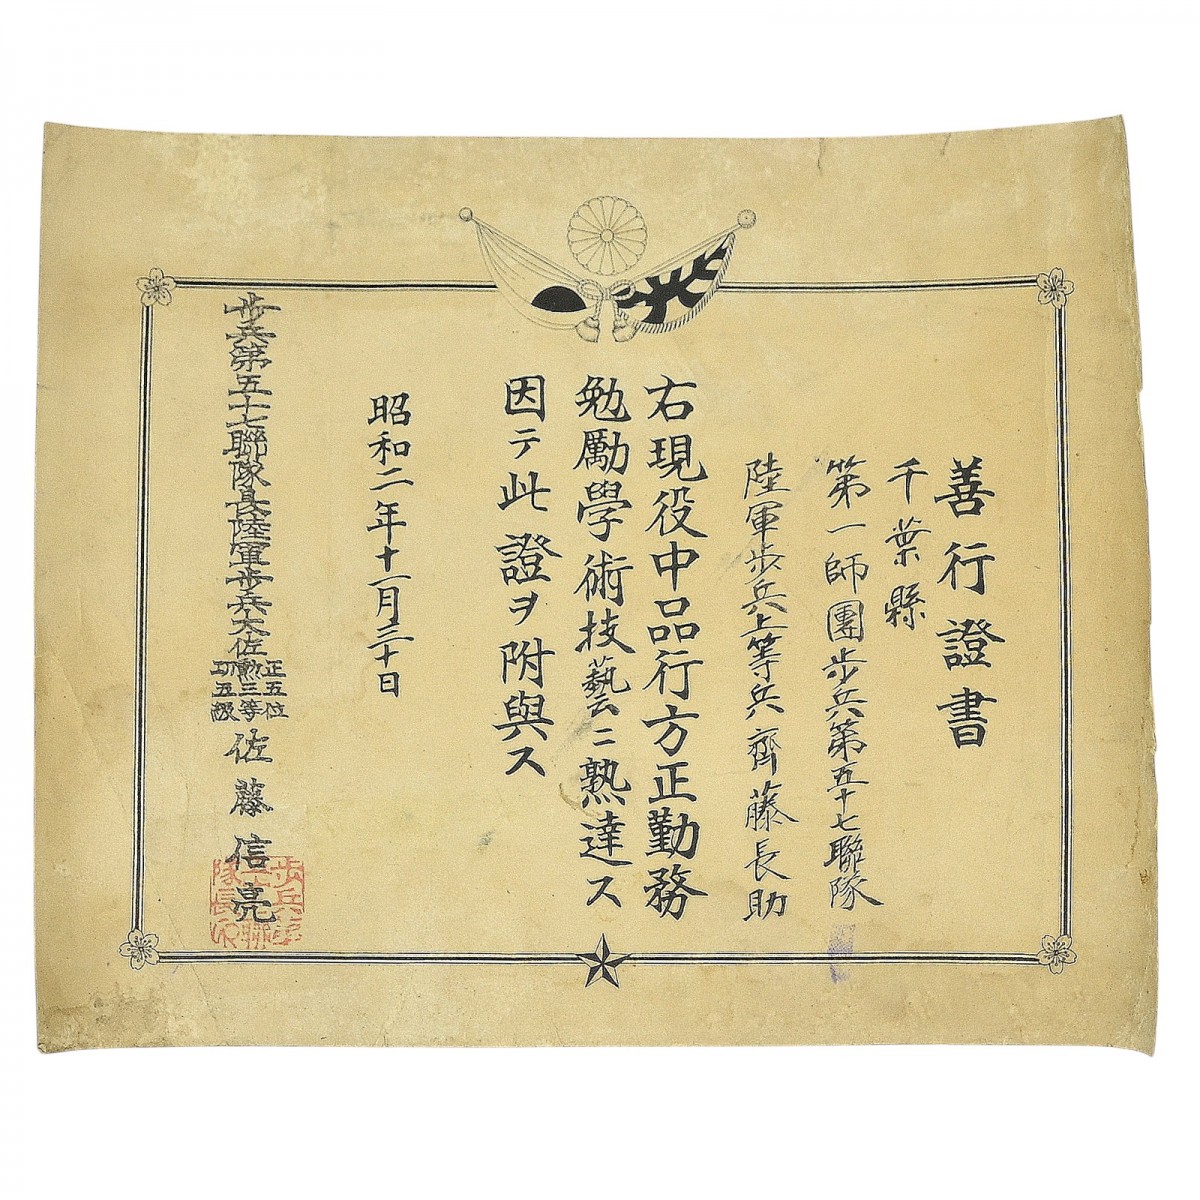 善行證書
千葉縣
第一師團步兵第五十七聯隊
陸軍步兵上等兵齊藤長助
右現役中品行方正勤務
勉勵學術技藝ニ熟達ス
因テ此證ヲ附與ス
昭和二年十一月三十日
步兵第五十七聯隊長陸軍步兵大佐正五位勲三等功五級佐藤信亮